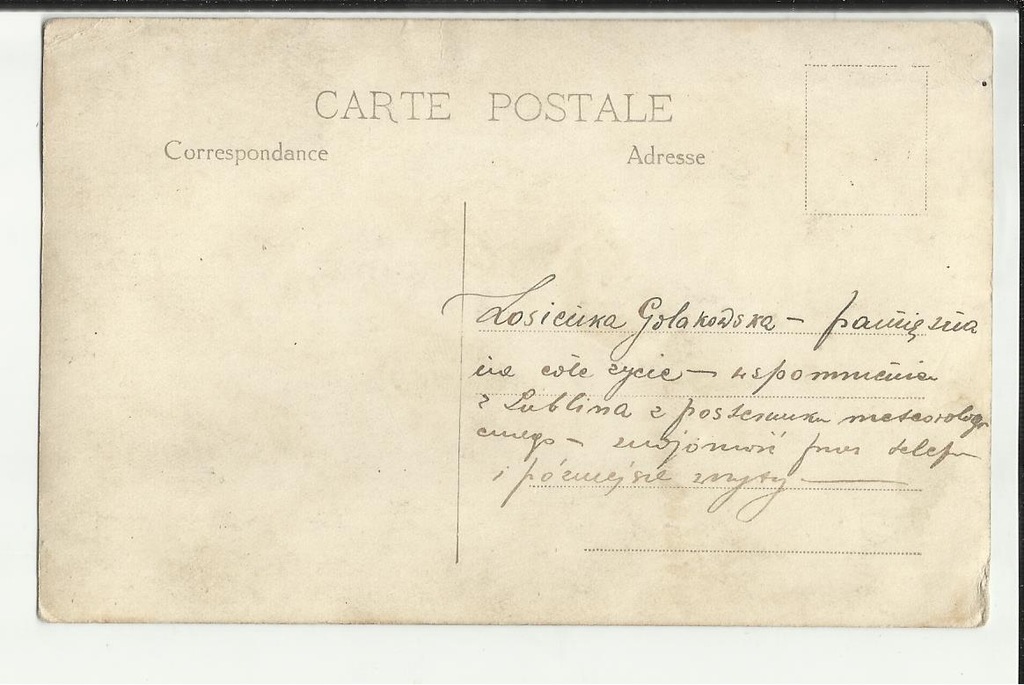 CARTE POSTALE
Correspondance
Adresse
Gołakowska – pamiętna
na całe życie – wspomnienie
z Lublina z posterunku meteorologi
cznego – znajomość przez telefon
i późniejsze wizyty —